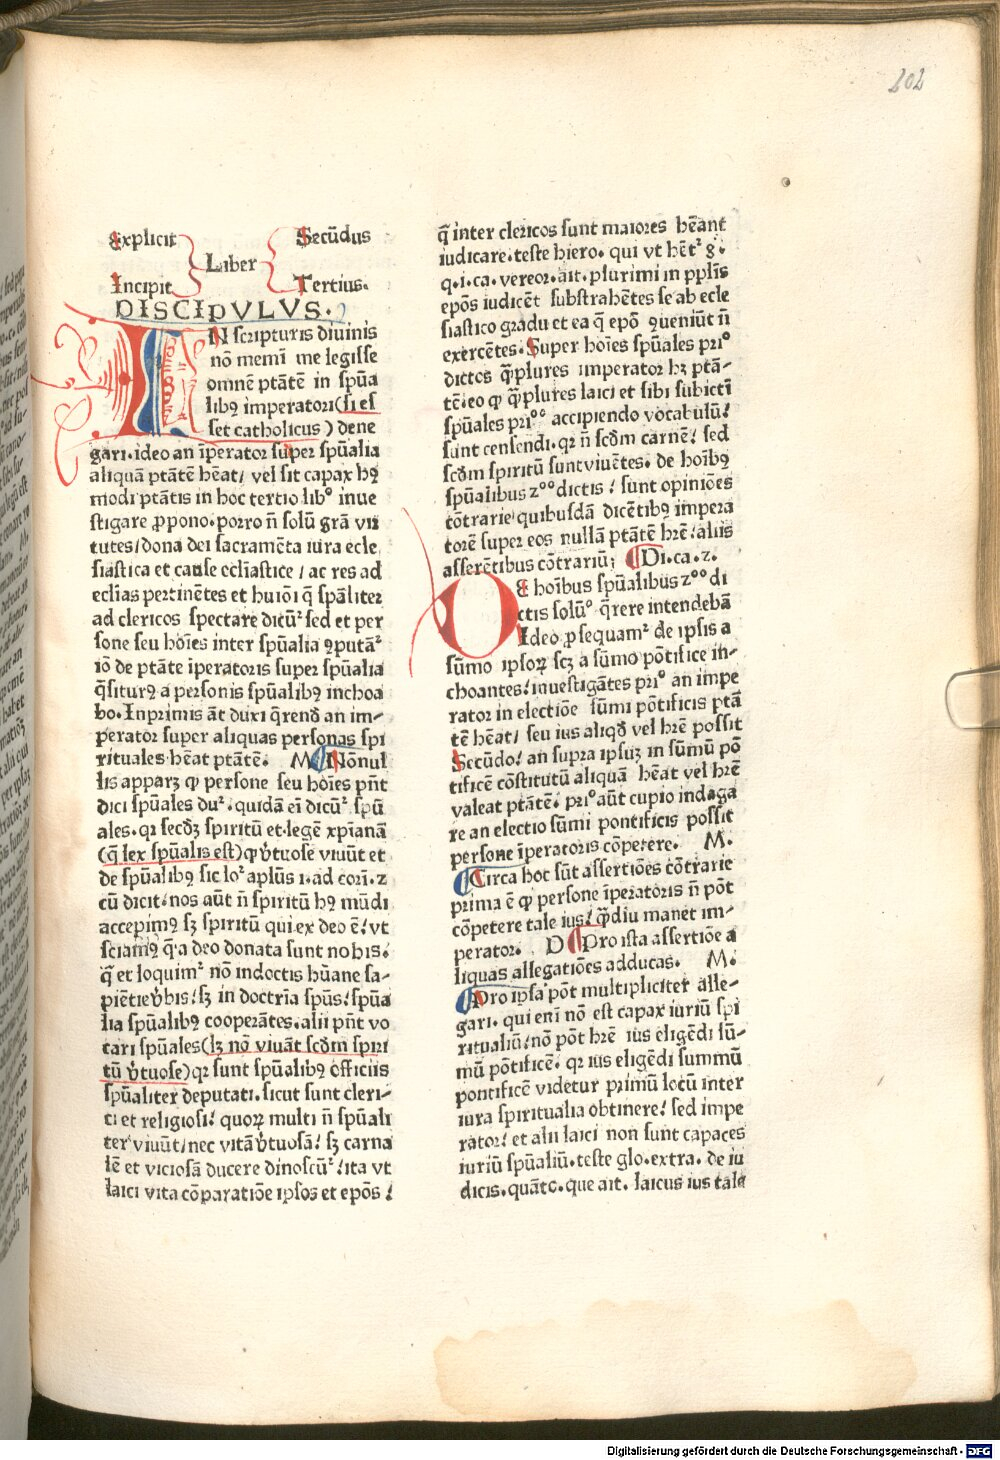 202
Explicit Secūdus
Liber
Incipit Tertius.
DISCIPVLVS.
IN scripturis diuinis
nō memī me legisse
omnē ptātē in spūa
libꝫ imperatori(si es
set catholicus) dene
gari.ideo an īperator super spūalia
aliquā ptātē hēat/ vel sit capax hꝰ
modi ptātis in hoc tertio libº inue
stigare ꝓpono.porro n̄ solū grā vir
tutes/dona dei sacramēta iura ecle
siastica et cause ecliastice / ac res ad
eclias pertinētes et huiōi q̄ spāliter
ad clericos spectare dicūᵗ sed et per
sone seu hoīes inter spūalia ꝯputāᵗ
iō de ptāte īperatoris super spūalia
q̄siturꝰ a personis spūalibꝰ inchoa
bo.Inprimis āt duxi q̄rend̄ an im-
perator super aliquas personas spi
rituales hēat ptātē. M Nōnul
lis apparꝫ ꝙ persone seu hoīes pn̄t
dici spūales duᵗ.quidā eī dicūᵗ spū
ales.qꝛ secdꝫ spiritū et legē xpīanā
(q̄ lex spūalis est)ꝙ v̄tuose viuūt et
de spūalibꝰ sic loᵗ aplūs 1.ad corī.z
cū dicit:nos aūt n̄ spiritū hꝰ mūdi
accepimꝰ sꝫ spiritū qui ex deo ē:vt
sciamꝰ q̄ a deo donata sunt nobis.
q̄ et loquimᵗ nō indoctis hūane sa-
piētie v̄bis:sꝫ in doctrīa spūs:spūa
lia spūalibꝰ cooperātes.alii pn̄t vo
cari spūales(lꝫ nō viuāt scd̄m spiri
tū v̄tuose)qꝛ sunt spūalibꝰ officiis
spūaliter deputati.sicut sunt cleri-
ci et religiosi: quoꝝ multi n̄ spūali
ter viuūt/nec vitā v̄tuosā: sꝫ carna
lē et viciosā ducere dinoscūᵗ:ita vt
laici vita cōparatiōe ipsos et epōs:
q̄ inter clericos sunt maiores hēant
iudicare.teste hiero. qui vt hētᵗ 8.
q.1.ca.vereor.ait.plurimi in pplīs
epōs iudicēt substrahētes se ab ecle
siastico gradu et ea q̄ epō ꝯueniūt n̄
exercētes.Super hoīes spūales priº
dictos qꝫplures imperator hꝫ ptā-
tē:eo ꝙ qꝫplures laici et sibi subiecti
spūales priºº accipiendo vocabulū:
sunt censendi.qꝛ n̄ scd̄m carnē: sed
scd̄m spiritū sunt viuētes. de hoībꝰ
spūalibus zºº dictis : sunt opiniōes
cōtrarie quibusdā dicētibꝰ impera
torē super eos nullā ptātē hrē:aliis
asserētibus cōtrariū; Di.ca.z.
DE hoībus spūalibus zºº di
ctis solūº q̄rere intendebā
Ideo ꝓsequamᵗ de ipsis a
sūmo ipsoꝝ scꝫ a sūmo pōtifice in-
choantes:inuestigātes priº an impe
rator in electiōe sūmi pōtificis ptā
tē hēat/ seu ius aliqd̄ vel hrē possit
Secūdo: an supra ipsuꝫ in sūmū pō
tificē cōstitutū aliquā hēat vel hrē
valeat ptātē. priº aūt cupio indaga
re an electio sūmi pontificis possit
persone īperatoris cōpetere. M.
Circa hoc sūt assertiōes cōtrarie
prima ē ꝙ persone īperatoris n̄ pōt
cōpetere tale ius: qꝫdiu manet im-
perator. D Pro ista assertiōe a
liquas allegatiōes adducas. M.
Pro ipsa pōt multipliciter alle-
gari. qui enī nō est capax iuriū spi
ritualiū:nō pōt hrē ius eligēdi sū-
mū pōtificē. qꝛ ius eligēdi summū
pontificē videtur primū locū inter
iura spiritualia obtinere: sed impe
rator: et alii laici non sunt capaces
iuriū spūaliū.teste glo.extra. de iu
dicis.quāto.que ait. laicus ius tale
Digitalisierung gefördert durch die Deutsche Forschungsgemeinschaft - DFG